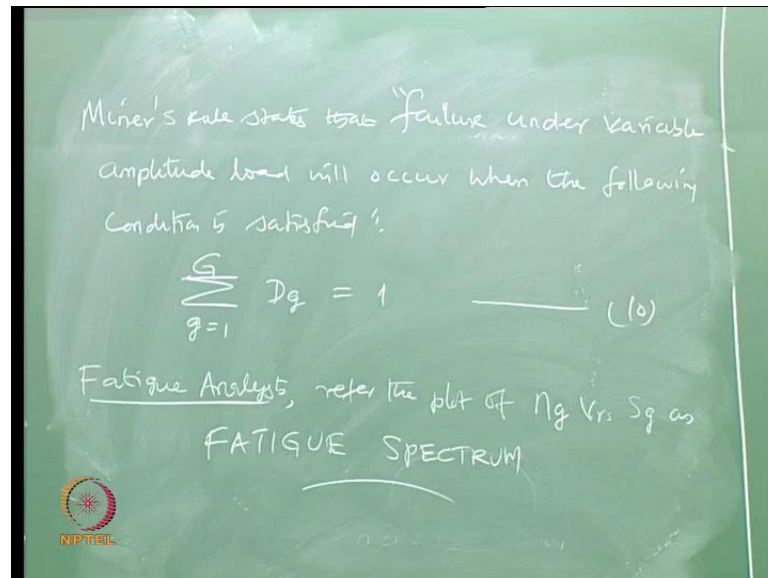 Miner's rule states that "failure under variable
amplitude load will occur when the following
condition is satisfied".
G
∑ Dg = 1 ——— (10)
g=1
Fatigue Analysts, refer the plot of ng Vrs Sg as
FATIGUE SPECTRUM
NPTEL